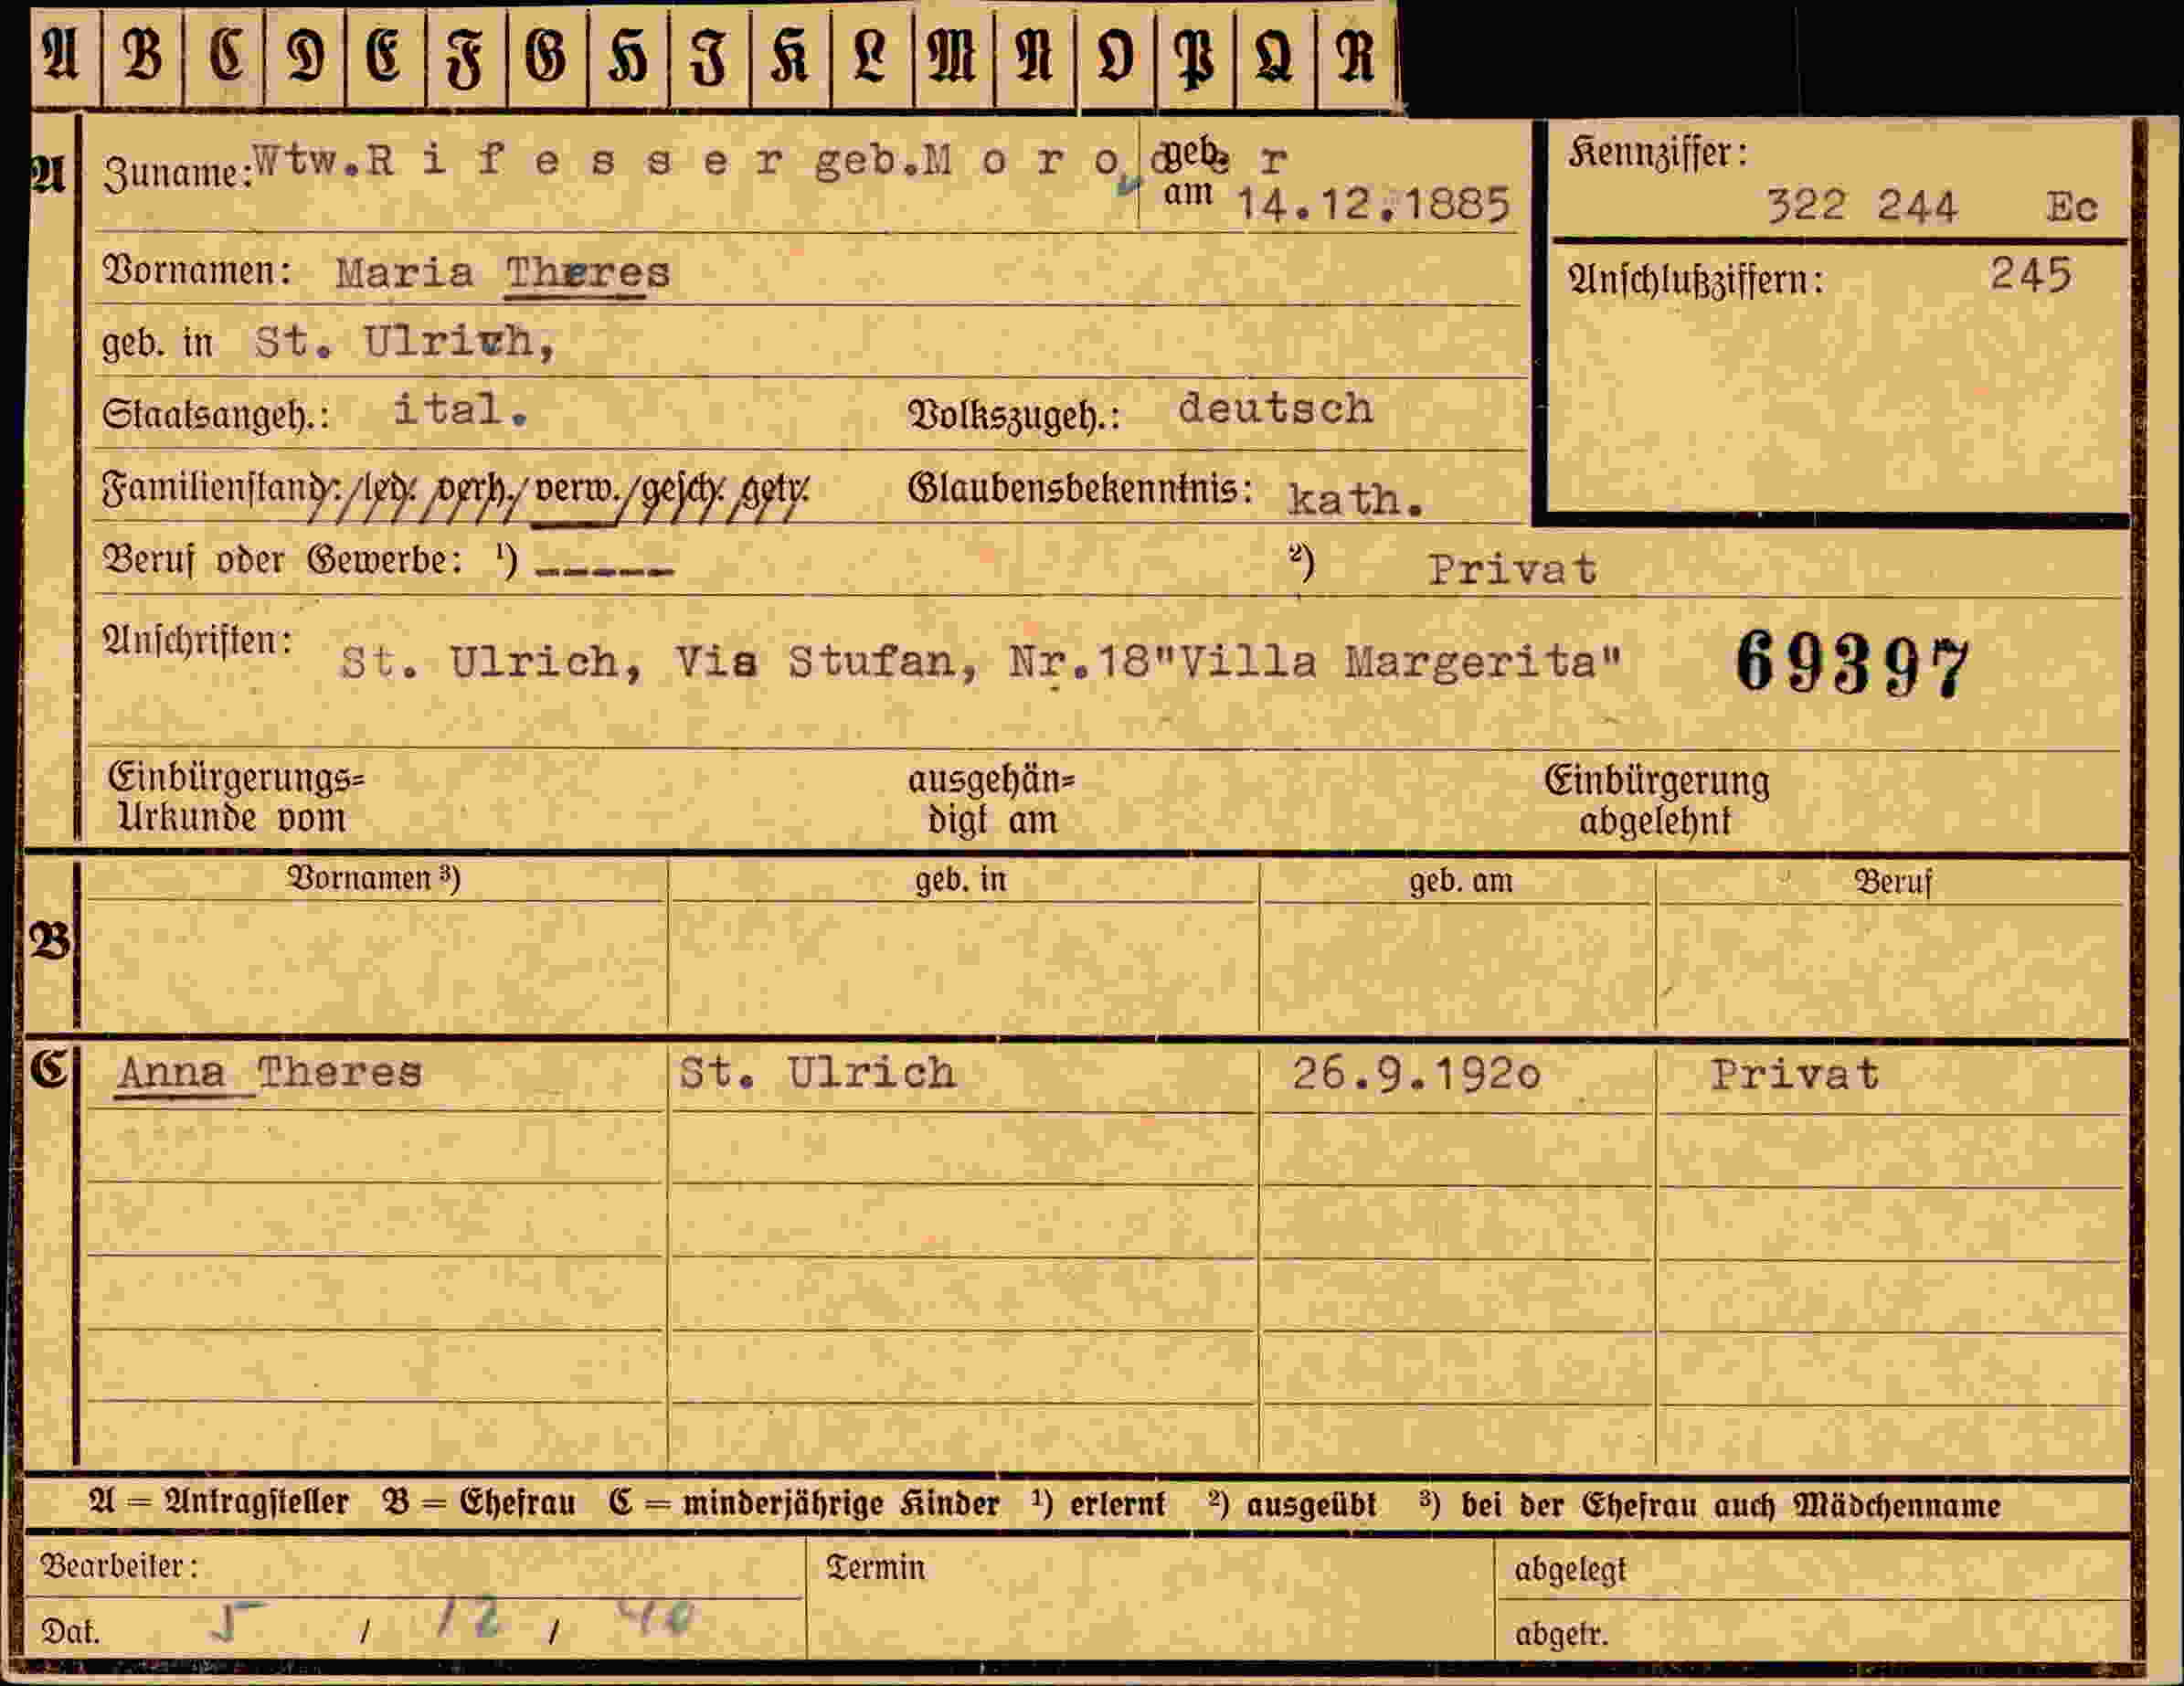 A B C D E F G H I K L M N O P Q R
A Zuname: Wtw. R i f e s s e r geb. M o r o d e r geb. am 14.12.1885
Kennziffer: 322 244 Ec
Vornamen: Maria Theres
Anschlußziffern: 245
geb. in St. Ulrich,
Staatsangeh.: ital. Volkszugeh.: deutsch
Familienstand: led. verh. verw. gesch. getr. Glaubensbekenntnis: kath.
Beruf oder Gewerbe: ¹) ----- ²) Privat
Anschriften: St. Ulrich, Via Stufan, Nr.18"Villa Margerita" 69397
Einbürgerungs= ausgehän= Einbürgerung
Urkunde vom digt am abgelehnt
Vornamen ³) geb. in geb. am Beruf
B
C Anna Theres St. Ulrich 26.9.192o Privat
A = Antragsteller B = Ehefrau C = minderjährige Kinder ¹) erlernt ²) ausgeübt ³) bei der Ehefrau auch Mädchenname
Bearbeiter: Termin abgelegt
Dat. 5 / 12 / 40 abgetr.